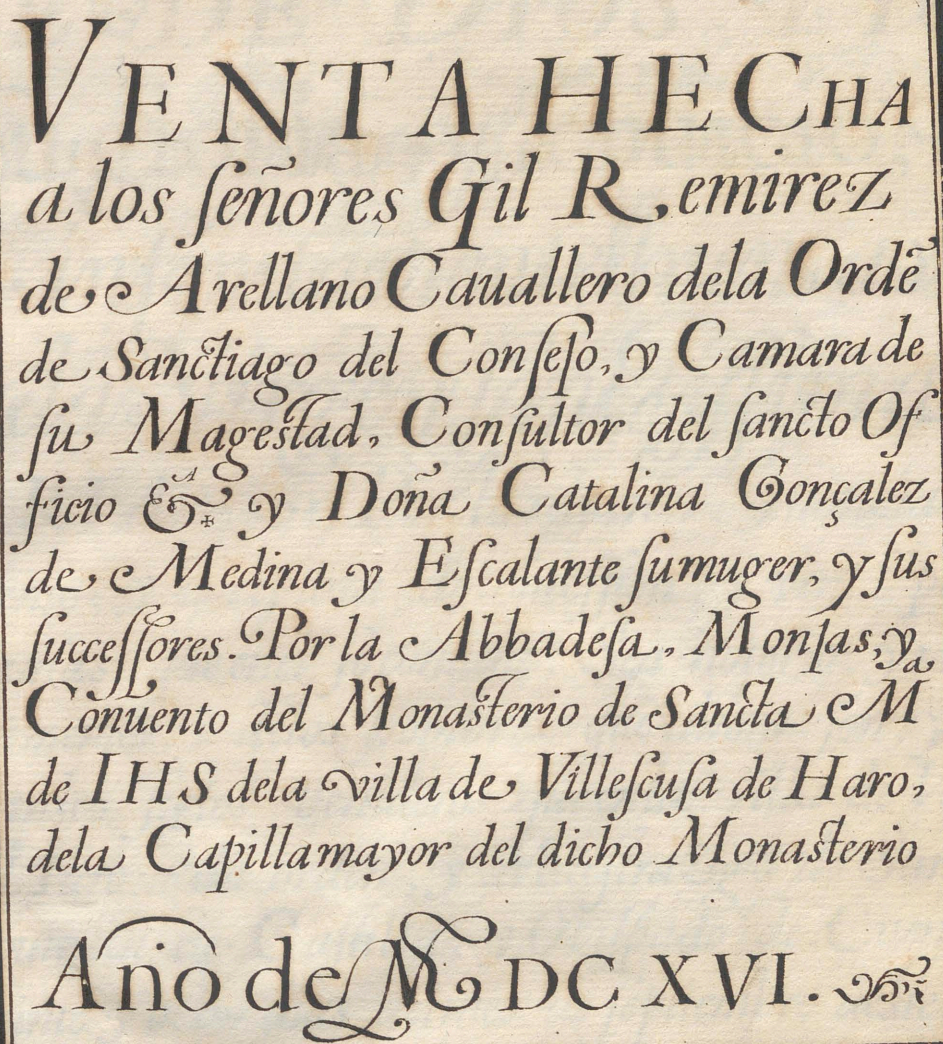 VENTA HECHA
a los ſeñores Gil Remirez
de Arellano Cauallero dela Ordẽ
de Sanctiago del Conſejo, y Camara de
ſu Magestad, Conſultor del ſancto Of
ficio &ᵃ. y Doña Catalina Gonçalez
de Medina y Eſcalante ſu muger, y ſus
ſucceſſores. Por la Abbadeſa, Monjas, y
Conuento del Monasterio de Sancta Mᵃ
de IHS dela villa de Villeſcuſa de Haro,
dela Capilla mayor del dicho Monasterio
Año de MDCXVI.